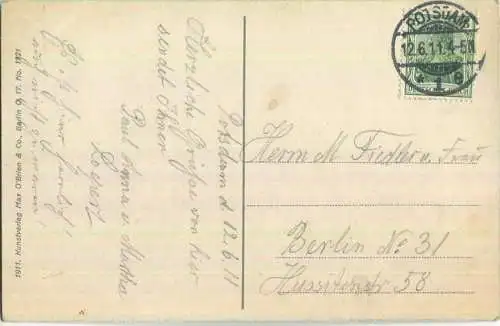 Potsdam d. 12.6.11
Herzliche Grüße von hier
sendet Ihnen
Paul Anna u. Martha
POTSDAM
12.6.11.4-5N
* 1 g
Herrn M. Fiedler u. Frau
Berlin No 31
Hussitenstr 58
1911. Kunstverlag Max O'Brien & Co., Berlin O. 17. No. 1921